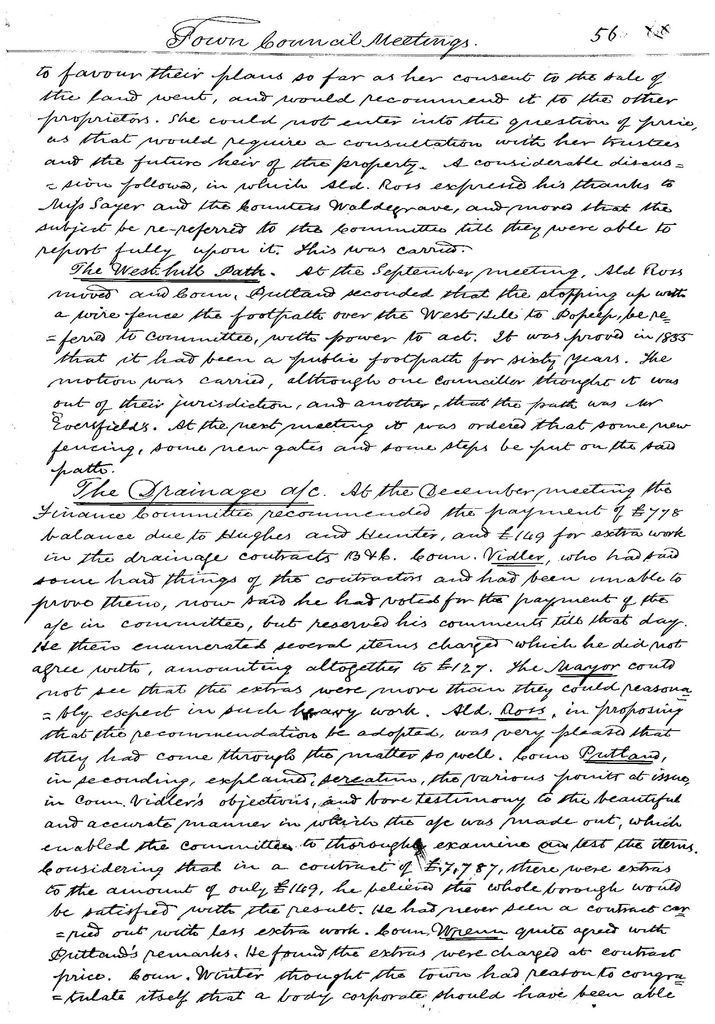 Town Council Meetings. 56
to favour their plans so far as her consent to the sale of
the land went, and would recommend it to the other
proprietors. She could not enter into the question of price,
as that would require a consultation with her trustees
and the future heir of the property. A considerable discus=
=sion followed, in which Ald. Ross expressed his thanks to
Miss Sayer and the Countess Waldegrave, and moved that the
subject be re-referred to the Committee till they were able to
report fully upon it. This was carried.
The West hill Path. At the September meeting, Ald Ross
moved and Coun. Putland seconded that the stopping up with
a wire fence the footpath over the West Hill to Bopeep, be re=
=ferred to Committee, with power to act. It was proved in 1835
that it had been a public footpath for sixty years. The
motion was carried, although one councillor thought it was
out of their jurisdiction, and another, that the path was Mr
Eversfields. At the next meeting it was ordered that some new
fencing, some new gates and some steps be put on the said
path.
The Drainage a/c. At the December meeting the
Finance Committee recommended the payment of £778
balance due to Hughes and Hunter, and £149 for extra work
in the drainage contracts B&C. Coun. Vidler, who had said
some hard things of the contractors and had been unable to
prove them, now said he had voted for the payment of the
a/c in committee, but reserved his comments till that day.
He then enumerated several items charged which he did not
agree with, amounting altogether to £127. The Mayor could
not see that the extras were more than they could reasona
=bly expect in such heavy work. Ald. Ross, in proposing
that the recommendation be adopted, was very pleased that
they had come through the matter so well. Coun Putland,
in seconding, explained, sereatim, the various points at issue,
in Coun. Vidler's objections, and bore testimony to the beautiful
and accurate manner in which the a/c was made out, which
enabled the committee to thoroughly examine test the items.
Considering that in a contract of £7,787, there were extras
to the amount of only £149, he believed the whole borough would
be satisfied with the result. He had never seen a contract car=
=ried out with less extra work. Coun. Wrenn quite agreed with
Putland's remarks. He found the extras were charged at contract
price. Coun. Winter thought the town had reason to congra
=tulate itself that a body corporate should have been able